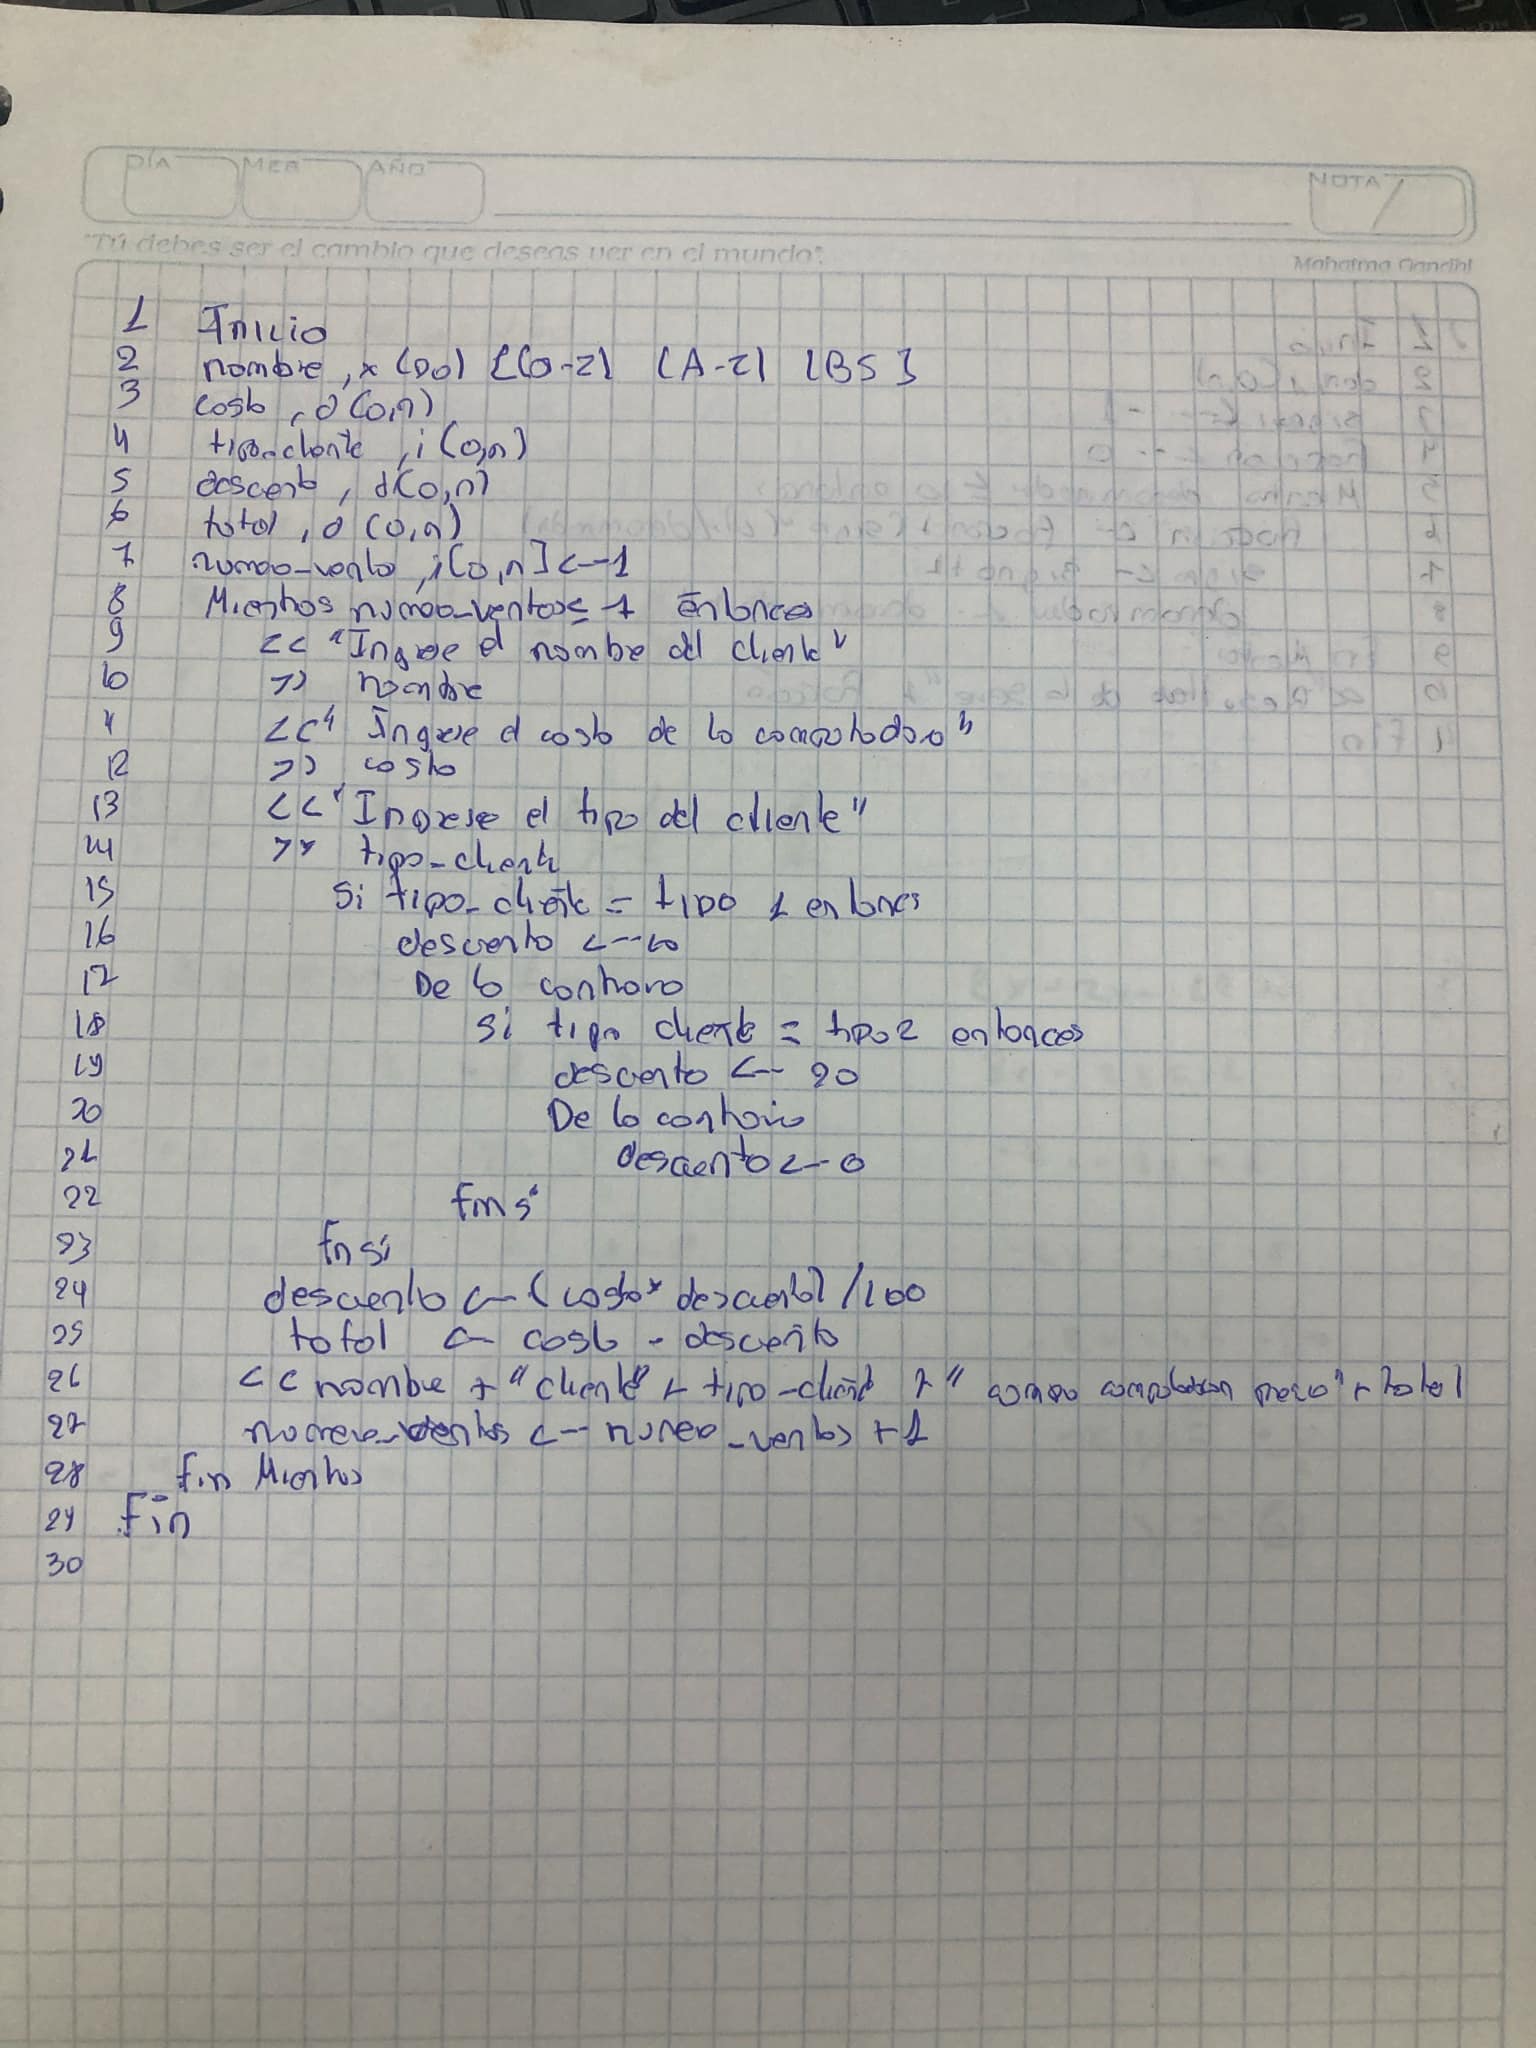 DÍA MES AÑO NOTA
"Tú debes ser el cambio que deseas ver en el mundo".
Mahatma Gandhi
1 Inicio
2 nombre, x (50) {[a-z] [A-Z] [BS]}
3 costo, d(0,n)
4 tipo-cliente, i(0,n)
5 descento, d(0,n)
6 total, d(0,n)
7 numero-ventas, i[0,n] <-- 1
8 Mientras numero-ventas <= 1 Entonces
9 << "Ingrese el nombre del cliente"
10 >> nombre
11 << "Ingrese el costo de la computadora"
12 >> costo
13 << "Ingrese el tipo del cliente"
14 >> tipo-cliente
15 Si tipo-cliente = tipo 1 entonces
16 descuento <-- 10
17 De lo contrario
18 Si tipo cliente = tipo 2 entonces
19 descuento <-- 20
20 De lo contrario
21 descuento <-- 0
22 finsi
23 finsi
24 descuento <-- (costo* descuento) /100
25 total <-- costo - descuento
26 << nombre + "cliente" + tipo-cliente + " compro precio" + total
27 numero-ventas <-- numero-ventas +1
28 fin Mientras
29 Fin
30